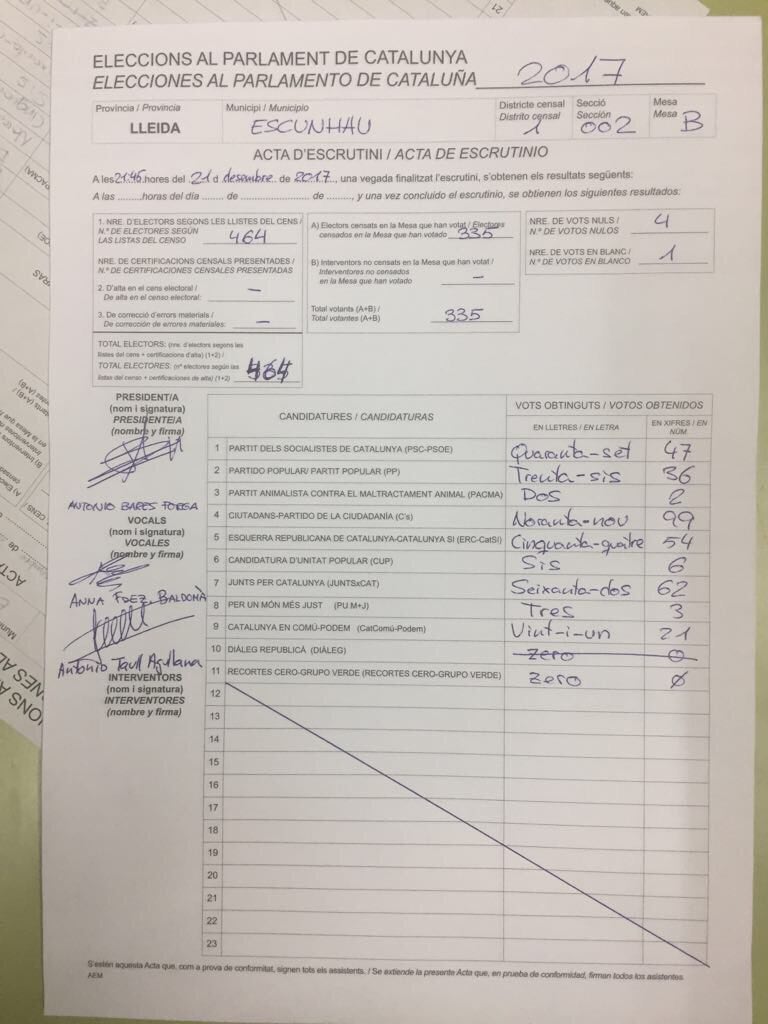 ELECCIONS AL PARLAMENT DE CATALUNYA
ELECCIONES AL PARLAMENTO DE CATALUÑA 2017
Província / Provincia
LLEIDA
Municipi / Municipio
ESCUNHAU
Districte censal
Distrito censal
1
Secció
Sección
002
Mesa
Mesa
B
ACTA D'ESCRUTINI / ACTA DE ESCRUTINIO
A les 21:45 hores del 21 d desembre de 2017, una vegada finalitzat l'escrutini, s'obtenen els resultats següents:
A las ........horas del día ....... de ................ de ........, y una vez concluido el escrutinio, se obtienen los siguientes resultados:
1. NRE. D'ELECTORS SEGONS LES LLISTES DEL CENS /
N.º DE ELECTORES SEGÚN
LAS LISTAS DEL CENSO 464
NRE. DE CERTIFICACIONS CENSALS PRESENTADES /
N.º DE CERTIFICACIONES CENSALES PRESENTADAS
2. D'alta en el cens electoral /
De alta en el censo electoral: –
3. De correcció d'errors materials /
De corrección de errores materiales: –
TOTAL ELECTORS: (nre. d'electors segons les
llistes del cens + certificacions d'alta) (1+2) /
TOTAL ELECTORES: (nº electores según las
listas del censo + certificaciones de alta) (1+2) 464
A) Electors censats en la Mesa que han votat / Electores
censados en la Mesa que han votado 335
B) Interventors no censats en la Mesa que han votat /
Interventores no censados
en la Mesa que han votado –
Total votants (A+B) /
Total votantes (A+B) 335
NRE. DE VOTS NULS /
N.º DE VOTOS NULOS 4
NRE. DE VOTS EN BLANC /
N.º DE VOTOS EN BLANCO 1
PRESIDENT/A
(nom i signatura)
PRESIDENTE/A
(nombre y firma)
ANTONIO BARES
VOCALS
(nom i signatura)
VOCALES
(nombre y firma)
ANNA FDEZ. BALDOMÀ
Antonio
INTERVENTORS
(nom i signatura)
INTERVENTORES
(nombre y firma)
CANDIDATURES / CANDIDATURAS
VOTS OBTINGUTS / VOTOS OBTENIDOS
EN LLETRES / EN LETRA
EN XIFRES / EN NÚM.
1 PARTIT DELS SOCIALISTES DE CATALUNYA (PSC-PSOE) Quaranta-set 47
2 PARTIDO POPULAR/ PARTIT POPULAR (PP) Trenta-sis 36
3 PARTIT ANIMALISTA CONTRA EL MALTRACTAMENT ANIMAL (PACMA) Dos 2
4 CIUTADANS-PARTIDO DE LA CIUDADANÍA (C's) Noranta-nou 99
5 ESQUERRA REPUBLICANA DE CATALUNYA-CATALUNYA SI (ERC-CatSI) Cinquanta-quatre 54
6 CANDIDATURA D'UNITAT POPULAR (CUP) Sis 6
7 JUNTS PER CATALUNYA (JUNTSxCAT) Seixanta-dos 62
8 PER UN MÓN MÉS JUST (PU M+J) Tres 3
9 CATALUNYA EN COMÚ-PODEM (CatComú-Podem) Vint-i-un 21
10 DIÀLEG REPUBLICÀ (DIÀLEG) Zero 0
11 RECORTES CERO-GRUPO VERDE (RECORTES CERO-GRUPO VERDE) Zero 0
12
13
14
15
16
17
18
19
20
21
22
23
S'estén aquesta Acta que, com a prova de conformitat, signen tots els assistents. / Se extiende la presente Acta que, en prueba de conformidad, firman todos los asistentes.
AEM